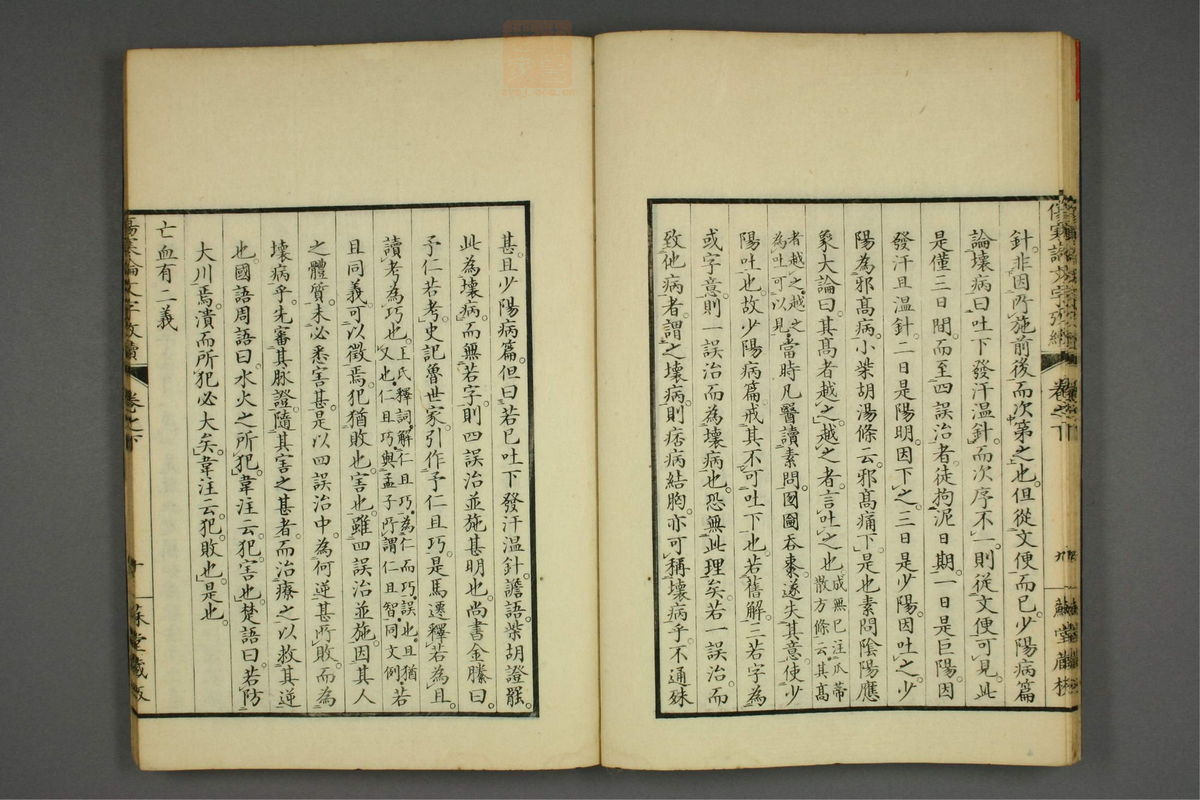 針。非因所施前後而次第之也。但從文便而已。少陽病篇
論壞病曰。吐下發汗温針。而次序不一。則從文便可見。此
是僅三日間。而至四誤治者。徒拘泥日期。一日是巨陽。因
發汗且温針。二日是陽明。因下之。三日是少陽。因吐之。少
陽為邪高病。小柴胡湯條云。邪高痛下是也。素問陰陽應
象大論曰。其高者越之。越之者。言吐之也。成無已注瓜蒂散方條云。其高
者越之。越之為吐可以見。當時凡醫讀素問。囫圇吞棗。遂失其意。使少
陽吐也。故少陽病篇。戒其不可吐下也。若舊解三若字為
或字意。則一誤治而為壞病也。恐無此理矣。若一誤治而
致他病者。謂之壞病。則痞病結胸。亦可稱壞病乎。不通殊
甚。且少陽病篇。但曰若已吐下發汗温針。譫語。柴胡證罷。
此為壞病。而無若字。則四誤治並施甚明也。尚書金縢曰。
予仁若考。史記魯世家。引作予仁且巧。是馬遷釋若為且。
讀考為巧也。王氏釋詞。解仁且巧。為仁而巧。誤也。且猶又也。仁且巧。與孟子所謂仁且智。同文例。若
且同義。可以徵焉。犯猶敗也。害也。雖四誤治並施。因其人
之體質。未必悉害甚。是以四誤治中。為何逆甚所敗。而為
壞病乎。先審其脉證。隨其害之甚者。而治療之。以救其逆
也。國語周語曰。水火之所犯。韋注云。犯。害也。楚語曰。若防
大川焉。潰而所犯必大矣。韋注云。犯。敗也。是也。
亡血有二義
傷寒論文字攷續
卷之下
十